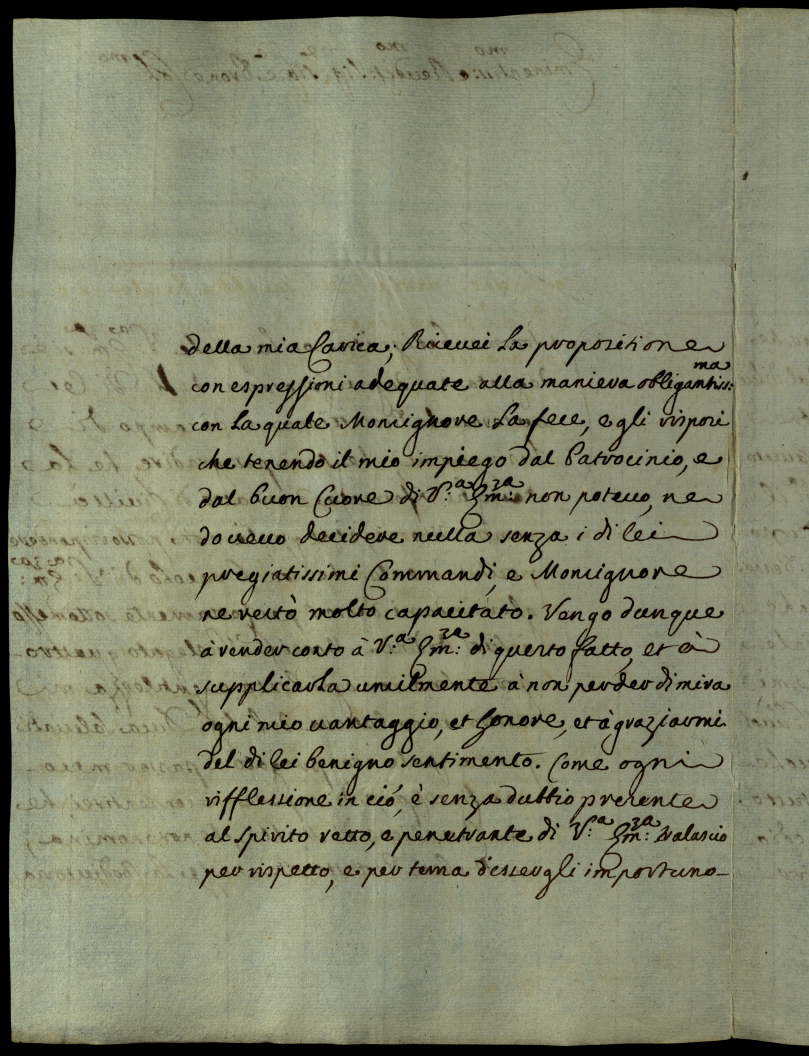 della mia Carica; Riceuei la propositione
con espressioni adequate alla maniera obligantiss:ma
con la quale Monsignore la fece, e gli risposi
che tenendo il mio impiego dal Patrocinio, e
dal buon Cuore di V:a Em:za non poteuo, ne
doueuo decidere nulla senza i di lei
pregiatissimi Commandi, e Monsignore
ne restò molto capacitato. Vengo dunque
à render conto à V:a Em:za di questo fatto, et à
supplicarla umilmente à non perder di mira
ogni mio uantaggio, et honore, et à graziarmi
del di lei benigno sentimento. Come ogni
rifflessione in ció, è senza dubbio presente
al spirito retto, e penetrante di V:a Em:za
per rispetto, e per tema d'essergli importuno